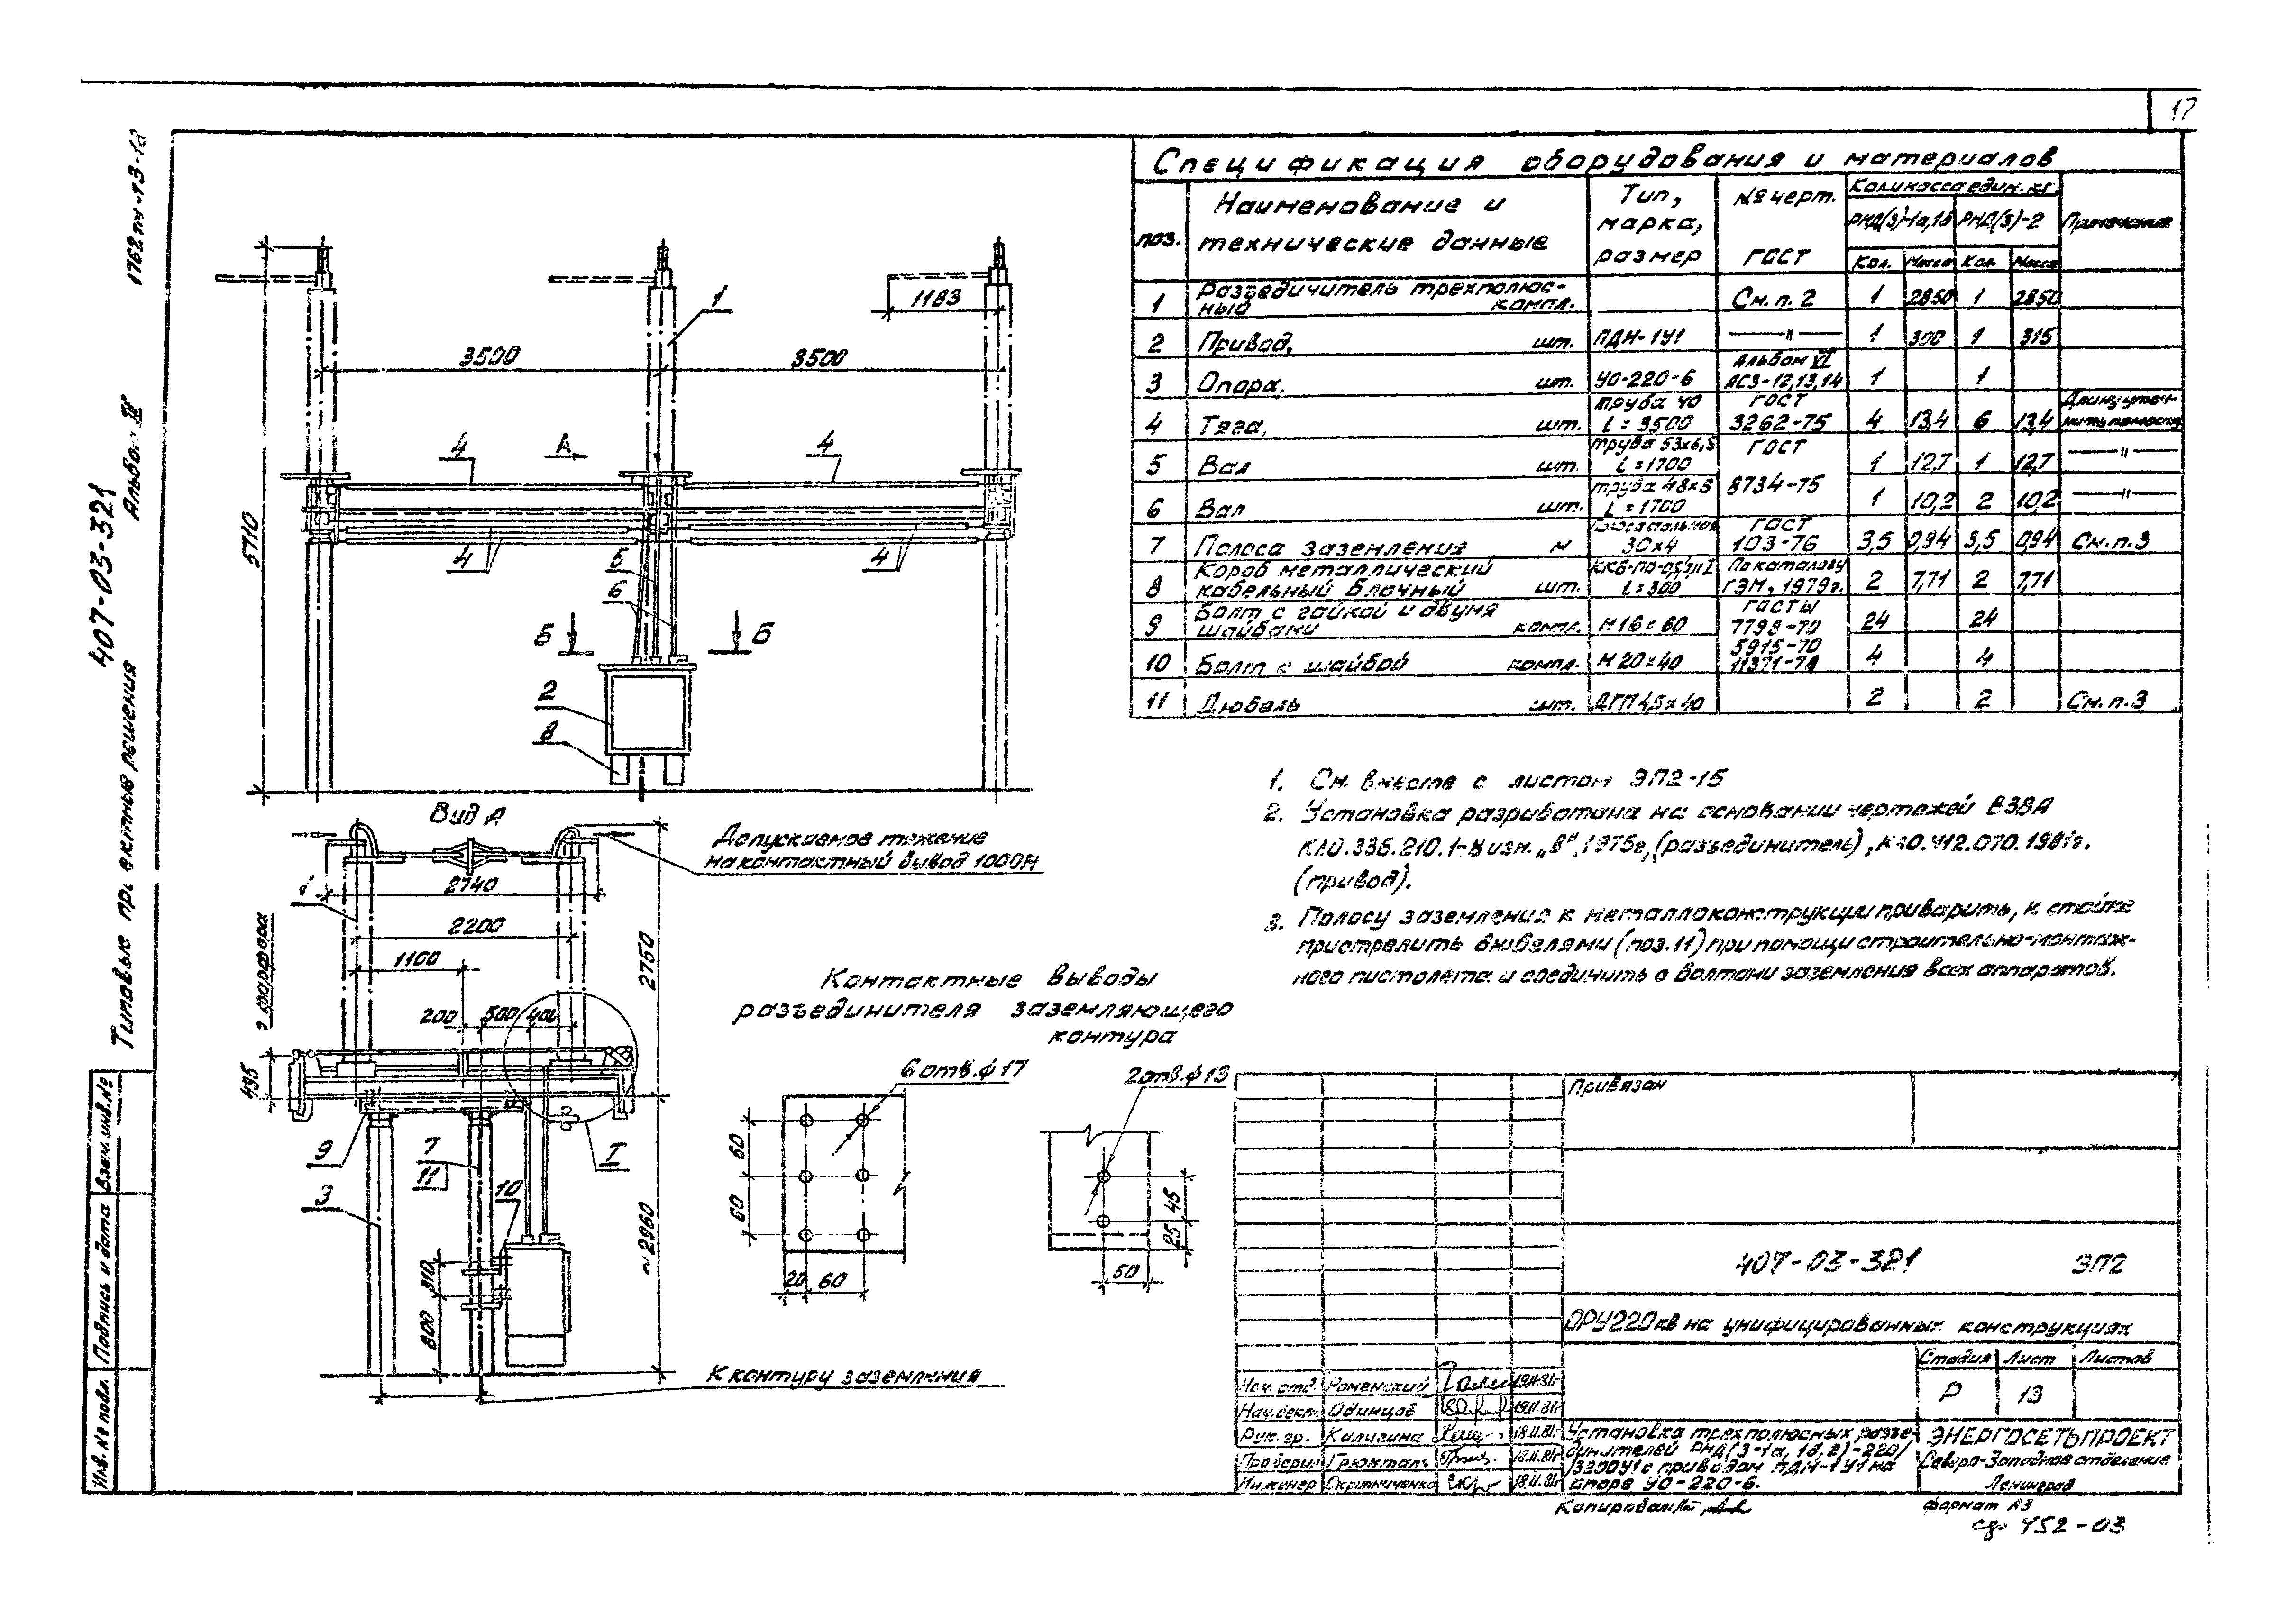 17
407-03-321
Альбом IV
Типовые проектные решения
Взам.инв.№
Подпись и дата
Инв.№ подл.
Спецификация оборудования и материалов
поз. Наименование и технические данные Тип, марка, размер № черт. ГОСТ Кол. и масса един. кг. Примечание
РНД(З)-1а,1б РНД(З)-2
Кол. Масса Кол. Масса
1 Разъединитель трехполюсный компл. См. п. 2 1 2850 1 2850
2 Привод, шт. ПДН-1У1 —"— 1 300 1 315
3 Опора, шт. УО-220-6 Альбом VI АС3-12,13,14 1 1
4 Тяга, шт. труба 40 L=3500 ГОСТ 3262-75 4 13,4 6 13,4 Длину уточнить по месту
5 Вал шт. труба 53х6,5 L=1700 ГОСТ 8734-75 1 12,7 1 12,7 —"—
6 Вал шт. труба 48х6 L=1700 1 10,2 2 10,2 —"—
7 Полоса заземления м 30х4 ГОСТ 103-76 3,5 0,94 3,5 0,94 См. п. 3
8 Короб металлический кабельный блочный шт. L=300 По каталогу ГЭМ, 1979г. 2 7,71 2 7,71
9 Болт с гайкой и двумя шайбами компл. М16х60 ГОСТЫ 7798-70 24 24
10 Болт с шайбой компл. М20х40 5915-70 11371-78 4 4
11 Дюбель шт. ДГП 4,5х40 2 2 См. п. 3
1183
1
3500
3500
4
А
4
5710
4
5
4
6
Б
Б
2
8
Вид А
Допускаемое тяжение
на контактный вывод 1000Н
1
2740
2200
1100
200
500
400
2750
435
9
7
11
10
I
3
310
800
~2960
К контуру заземления
Контактные выводы
разъединителя заземляющего
контура
6 отв. ф17
60
60
20
60
2 отв. ф13
45
25
50
1. См. вместе с листом ЭП2-15
2. Установка разработана на основании чертежей ВЗВА
(разъединитель),
(привод).
3. Полосу заземления к металлоконструкции приварить, к стойке
пристрелить дюбелями (поз. 11) при помощи строительно-монтаж-
ного пистолета и соединить с болтами заземления всех аппаратов.
Привязан
407-03-321 ЭП2
ОРУ 220 кв на унифицированных конструкциях
Стадия Лист Листов
Р 13
Нач. отд. Роменский
Нач. сект. Одинцов
Рук. гр. Калугина
Проверил
Инженер Скрипниченко
Установка трехполюсных разъе-
динителей РНД(З-1а, 1б, 2)-220/
3200У1 с приводом ПДН-1У1 на
опоре УО-220-6.
ЭНЕРГОСЕТЬПРОЕКТ
Северо-Западное отделение
Ленинград
Копировал
формат А3